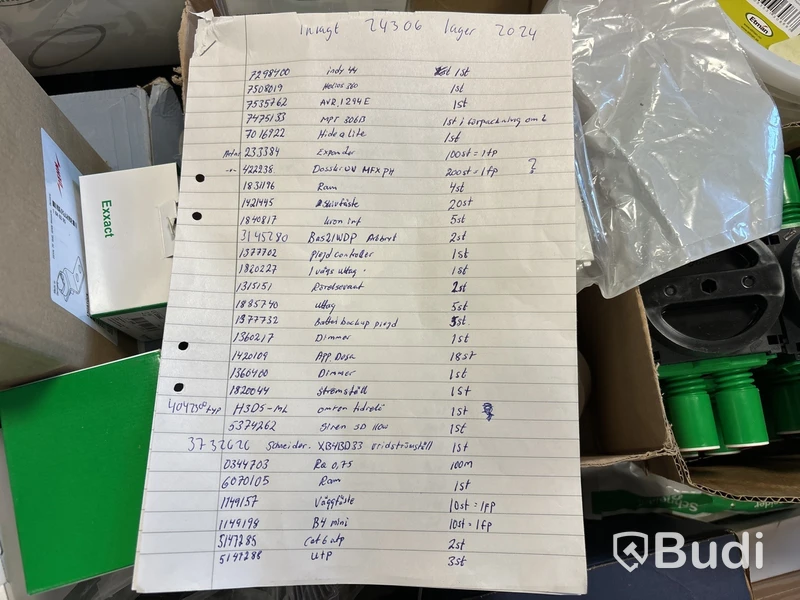 Inlagt 24306 lager 2024
7298400 indy 44 1st
7508019 Helios 360 1st
7535762 AVR, 1294E 1st
7475133 MPT 306B 1st i förpackning om 6
7016922 Hide a lite 1st
233384 Expander 100st = 1fp
422238 MFX P4 200st = 1fp ?
1831196 Ram 4st
1421445 20st
1840817 kron inf 5st
3145280 Bas21WDP 2st
1377702 plejd controller 1st
1820227 1 vägs uttag 1st
1315151 2st
1885740 uttag 5st
1377732 Batteribackup plejd 5st
1360217 Dimmer 1st
1420109 App Dosa 18st
1360400 Dimmer 1st
1820044 Strömställ 1st
H3DS-ML omron tidrelä 1st
5374262 Siren SD 1st
3732626 Schneider XB4BD33 vridströmställ 1st
0344703 Ra 0,75 100m
6070105 Ram 1st
1149157 Väggfäste 10st = 1fp
1149198 B4 mini 10st = 1fp
5147285 Cat 6 utp 2st
5147288 utp 3st
Exxact
Elmån
Budi